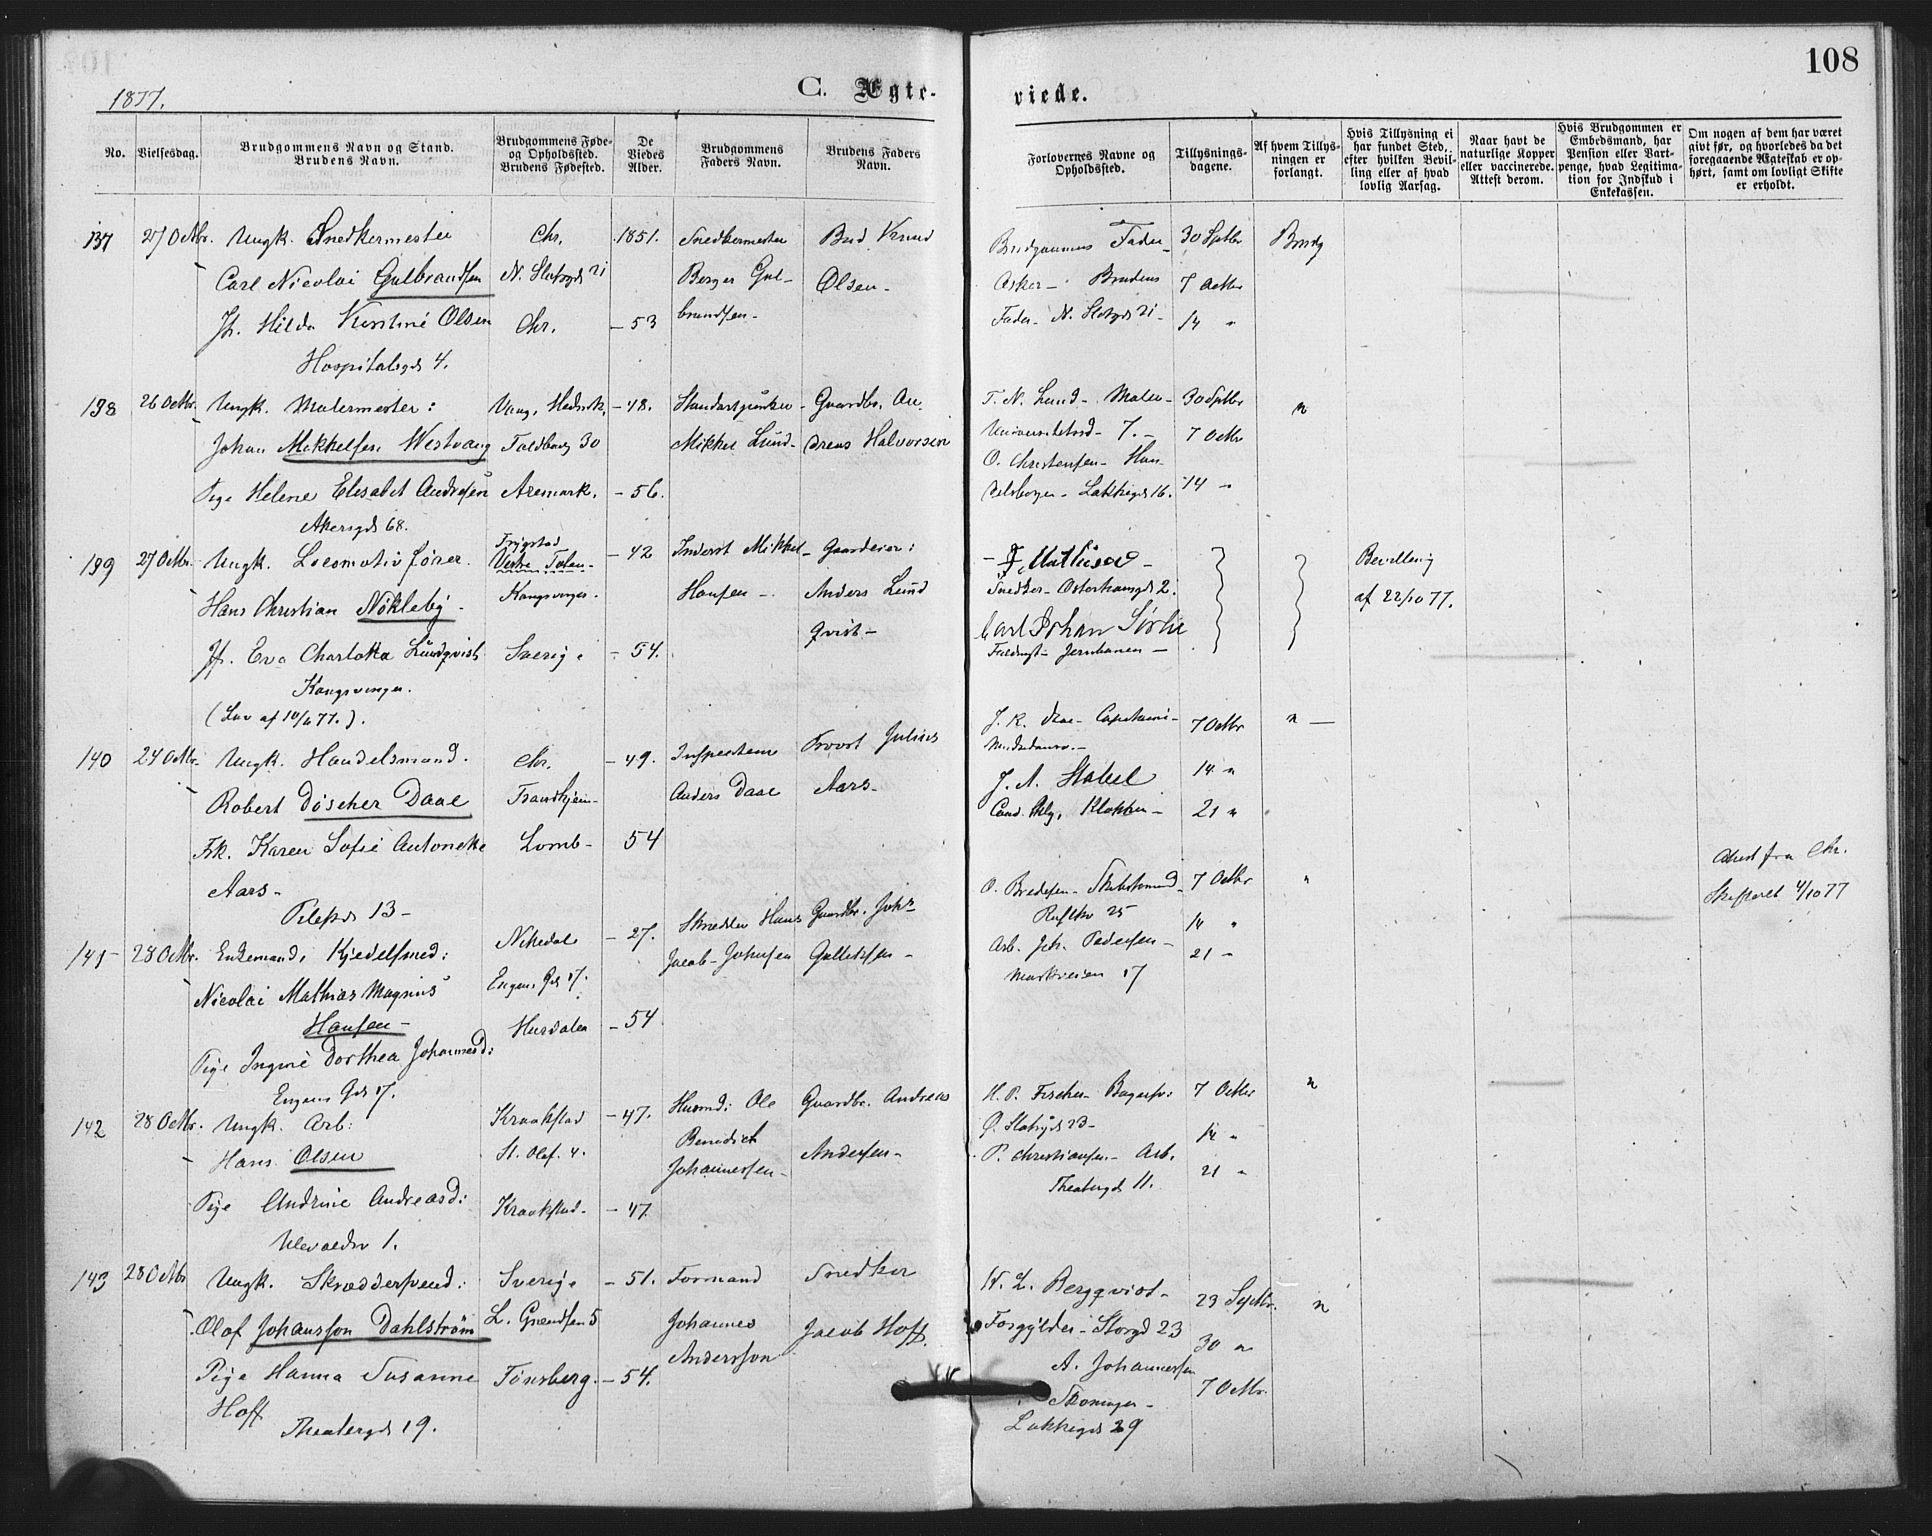 108
1877.
C. Ægte-
viede.
No.
Vielsesdag.
Brudgommens Navn og Stand.
Brudens Navn.
Brudgommens Føde-
og Opholdssted.
Brudens Fødested.
De
Viedes
Alder.
Brudgommens
Faders Navn.
Brudens Faders
Navn.
Forlovernes Navne og
Opholdssted.
Tillysnings-
dagene.
Af hvem Tillys-
ningen er
forlangt.
Hvis Tillysning ei
har fundet Sted,
efter hvilken Bevil-
ling eller af hvad
lovlig Aarsag.
Naar havt de
naturlige Kopper
eller vaccinerede.
Attest derom.
Hvis Brudgommen er
Embedsmand, har
Pension eller Vart-
penge, hvad Legitima-
tion for Indskud i
Enkekassen.
Om nogen af dem har været
givt før, og hvorledes da det
foregaaende Ægteskab er op-
hørt, samt om lovligt Skifte
er erholdt.
137
27 Octbr.
Ungk. Snedkermester
Carl Nicolai Gulbrandsen
Jfr. Hilda Kirstine Olsen
Hospitalsgd 4.
Chr.
N. Slotsgd 21
Chr.
1851.
- 53
Snedkermester
Berger Gul-
brandsen-
Bud Knud
Olsen-
Brudgommens Fader-
Asker- Brudens
Fader- N. Slotsgd 21-
30 Septbr
7 Octbr
14 "
Brudg
138
26 Octbr.
Ungk. Malermester:
Johan Mikkelsen Westvang
Pige Helene Elisabet Andresen
Akersgd 68.
Vang, Hedmk,
Toldbodg 30
Aremark.
- 48.
- 56.
Mikkel Lund-
Gaardbr. An-
dreas Halvorsen
T. N. Lund- Maler-
Universitetsgd- 7.-
O. Christensen- Han-
delsborger- Lakkegd 16.
30 Septbr
7 Octbr
14 "
"
139
27 Octbr.
Ungk. Locomotivfører.
Hans Christian Nökleby-
Jfr. Eva Charlotta Lundqvist
Kongsvinger.
(Lov af 10/6 77.).
Trygstad
Vestre Toten-
Kongsvinger.
Sverige
- 42
- 54.
Inderst Mikkel
Hansen-
Gaardeier:
Anders Lund
qvist-
Snedker- Osterhausgd 2.
Carl Johan Sørlie
Jernbanen-
Bevilling
af 22/10 77.
140
24 Octbr.
Ungk. Handelsmand.
Robert Döscher Daae
Frk. Karen Sofie Antonette
Aars-
Pilestr 13-
Chr.
Trondhjem-
Lomb-
- 49.
54
Anders Daae
Provst Julius
Aars-
J. A. Stabel
7 Octbr
14 "
21 "
" -
141
28 Octbr.
Enkemand, Kjedelsmed:
Nicolai Mathias Magnus
Hansen-
Pige Ingine Dorthea Johannesd:
Engens Gd 17.
Nitedal
Engens Gd 17.
Hurdalen
- 27.
- 54
Skrædder Hans
Jacob- Johnsen
Gaardbr. Johs
Gulliksen-
O. Bredesen-
25
Arb. Joh. Pedersen-
Markveien 17
7 Octbr
14 "
21 "
"
Attest fra Chr.
Skifteret 4/10 77
142
28 Octbr.
Ungk. Arb:
Hans Olsen
Pige Andrine Andreasd:
Ulevoldsv 1.
Kraakstad
St. Olaf. 4.
Kraakstad-
- 47.
- 47
Husmd: Ole
Benedict
Johannessen-
Gaardbr. Andreas
Andersen-
H. P. Fischer- Bagersv:
Ø. Slotsgd 23-
P. Christiansen- Arb.
Theatergd 11.
7 Octbr
14 "
21 "
"
143
28 Octbr
Ungk. Skræddersvend:
Olof Johansson Dahlström
Pige Hanna Susanne
Hoff
Theatergd 19.
Sverige
L. Grændsen 5
Tönsberg.
- 51.
- 54.
Formand
Johannes
Andersson
Snedker
Jacob Hoff.
W. L. Bergqvist-
Forgylder- Storgd 23
A. Johannessen
Skomager-
Lakkegd 29
23 Septbr.
30 "
7 Octbr.
"